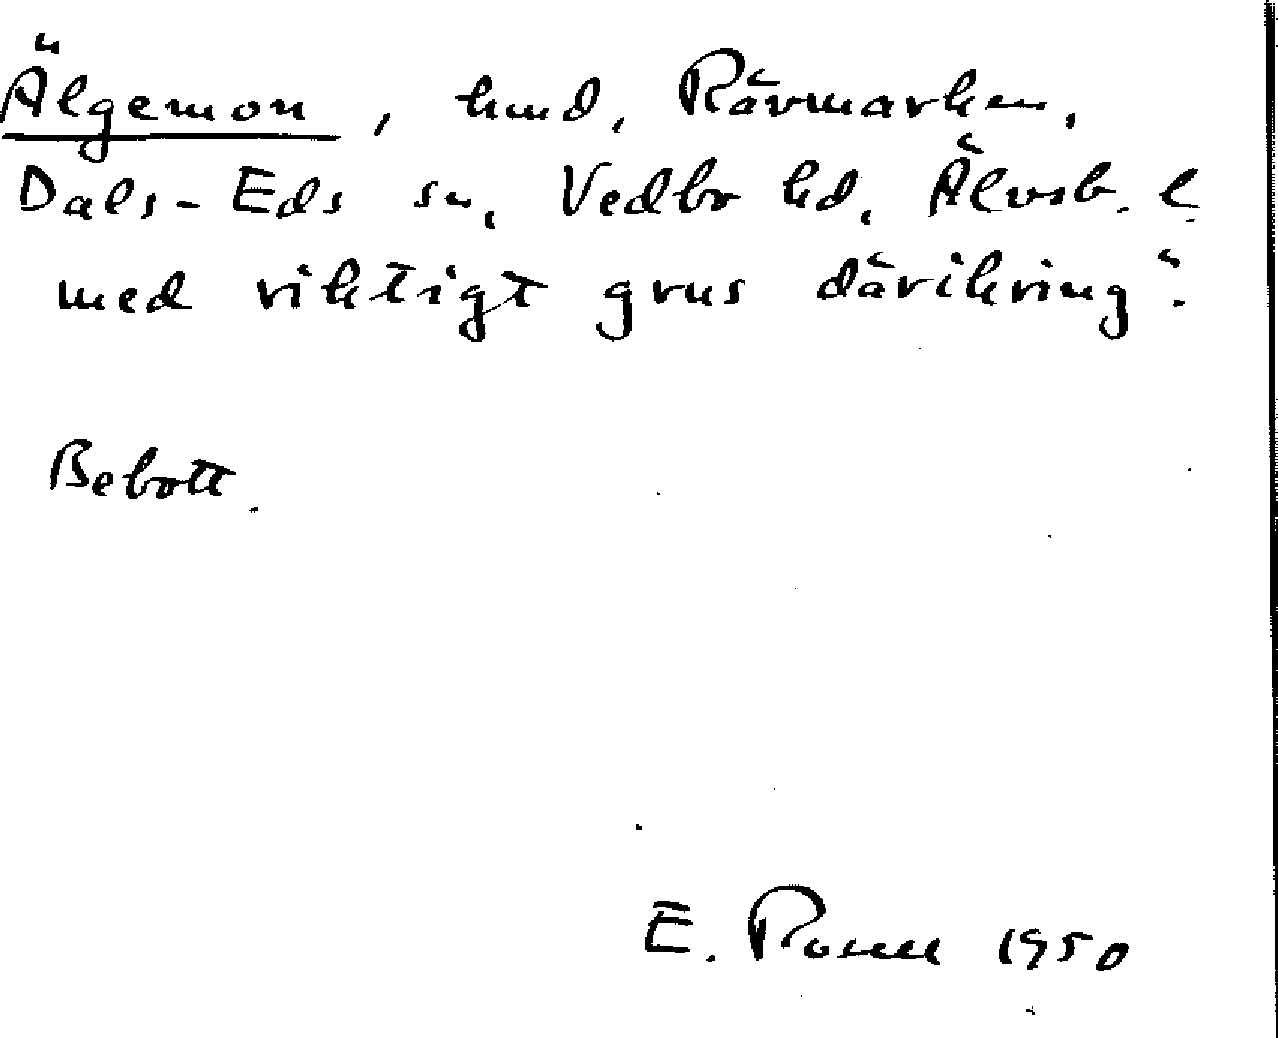 Älgemon, hmd, Rävmarken,
Dals-Eds sn, Vedbo hd, Älvsb. l.
med riktigt grus därikring".
Bebott.
E. Rosell 1950